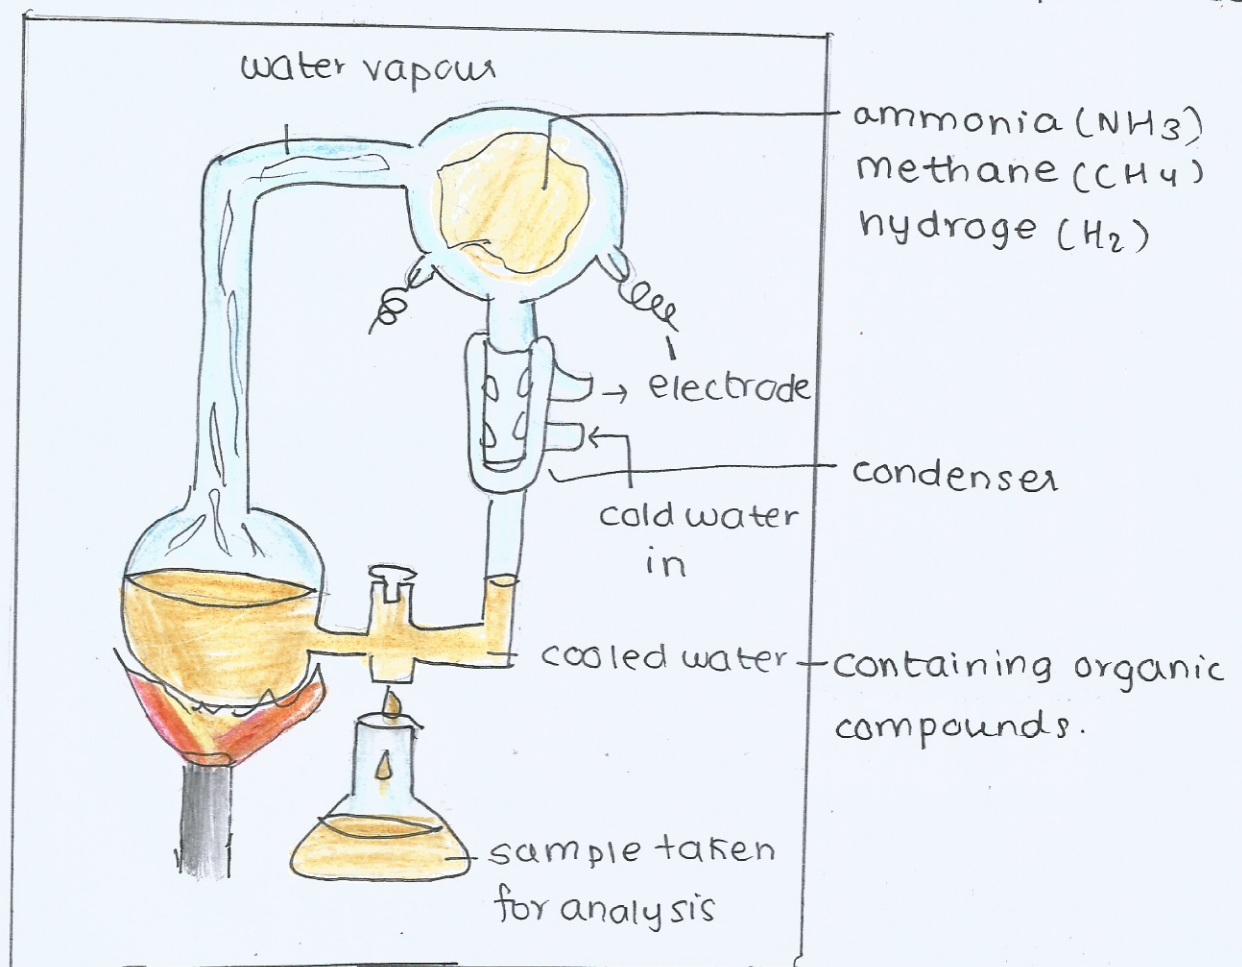 water vapour
ammonia (NH3)
methane (CH4)
hydroge (H2)
→ electrode
condenser
cold water
in
cooled water
containing organic
compounds.
sample taken
for analysis